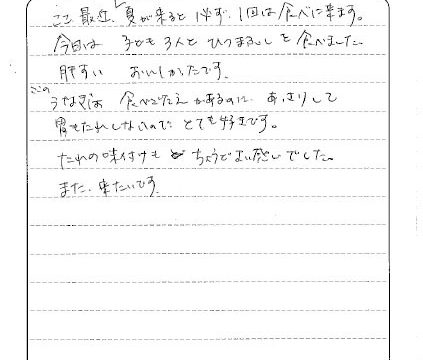 ここ最近、夏が来ると必ず、1回は食べに来ます。
今日は 子ども3人と ひつまぶしを食べました。
肝すい おいしかったです。
このうなぎは 食べごたえがあるのに、あっさりして
胃もたれしないので とても好きです。
たれの味付けも ちょうどよい感じでした。
また、来たいです。